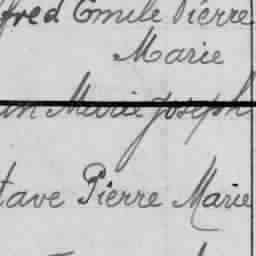 fred Emile Pierre
Marie
Marie Joseph
tave Pierre Marie